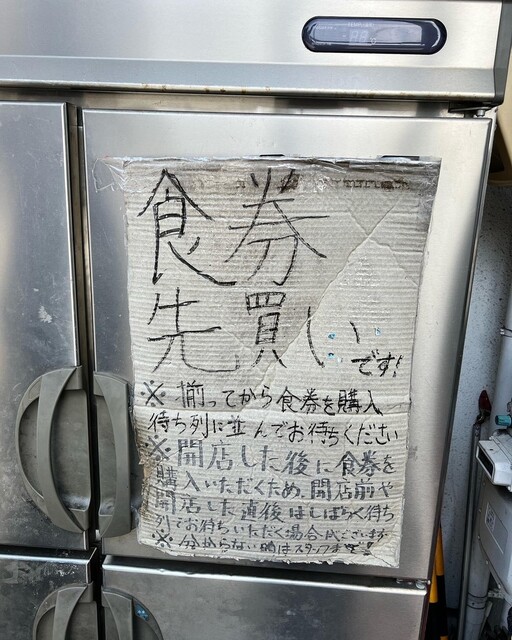 食券
先買い
です!
※ 揃ってから食券を購入
待ち列に並んでお待ちください
※開店した後に食券を
購入いただくため、開店前や
開店した直後はしばらく待ち
列でお待ちいただく場合がございます
※分からない時はスタッフまで!!